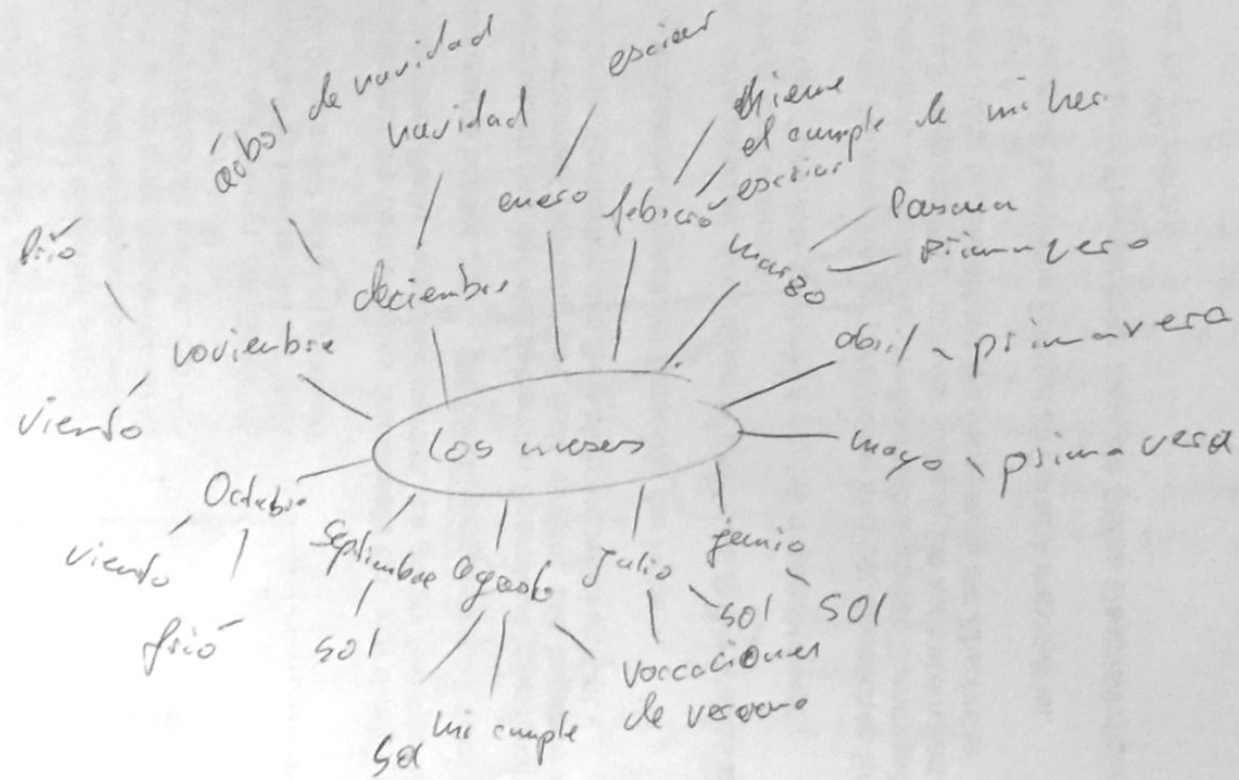 los meses
enero
esciar
febrero
el cumple de mi her
esciar
marzo
pascua
primavero
abril
primavera
mayo
primavera
junio
sol
julio
sol
vaccaciones
de verano
agosto
mi cumple
sol
septiembre
sol
Octubre
viento
frió
noviembre
viento
frió
deciembre
árbol de navidad
navidad